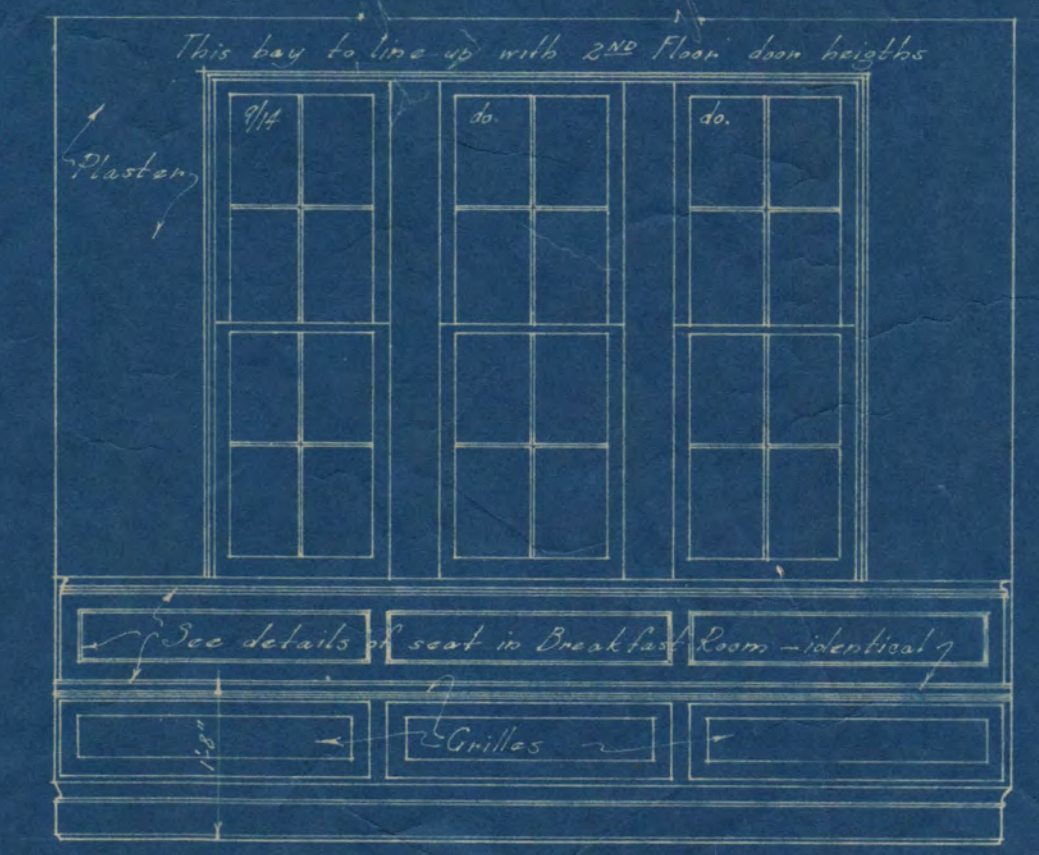 This bay to line up with 2ND Floor door heigths
9/14
do.
do.
Plaster
See details of seat in Breakfast Room – identical
1'-8"
Grilles